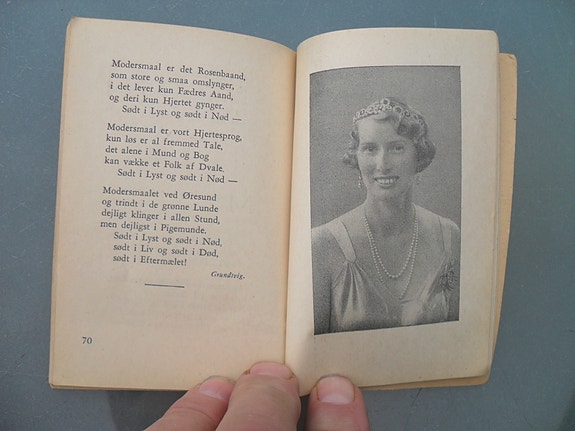 Modersmaal er det Rosenbaand,
som store og smaa omslynger,
i det lever kun Fædres Aand,
og deri kun Hjertet gynger.
Sødt i Lyst og sødt i Nød —
Modersmaal er vort Hjertesprog,
kun løs er al fremmed Tale,
det alene i Mund og Bog
kan vække et Folk af Dvale,
Sødt i Lyst og sødt i Nød —
Modersmaalet ved Øresund
og trindt i de grønne Lunde
dejligt klinger i allen Stund,
men dejligst i Pigemunde.
Sødt i Lyst og sødt i Nød,
sødt i Liv og sødt i Død,
sødt i Eftermælet!
Grundtvig.
70